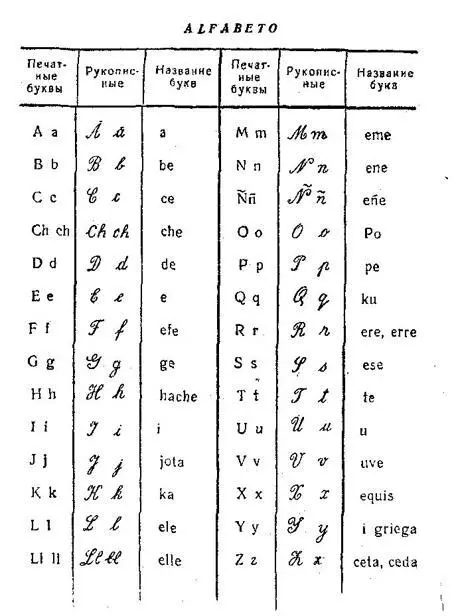 ALFABETO
Печат- Рукопис- Название Печат- Рукопис- Название
ные ные букв ные ные букв
буквы буквы
A a A a a M m M m eme
B b B b be N n N n ene
C c C c ce Ñ ñ Ñ ñ eñe
Ch ch Ch ch che O o O o Po
D d D d de P p P p pe
E e E e e Q q Q q ku
F f F f efe R r R r ere, erre
G g G g ge S s S s ese
H h H h hache T t T t te
I i I i i U u U u u
J j J j jota V v V v uve
K k K k ka X x X x equis
L l L l ele Y y Y y i griega
Ll ll Ll ll elle Z z Z z ceta, ceda